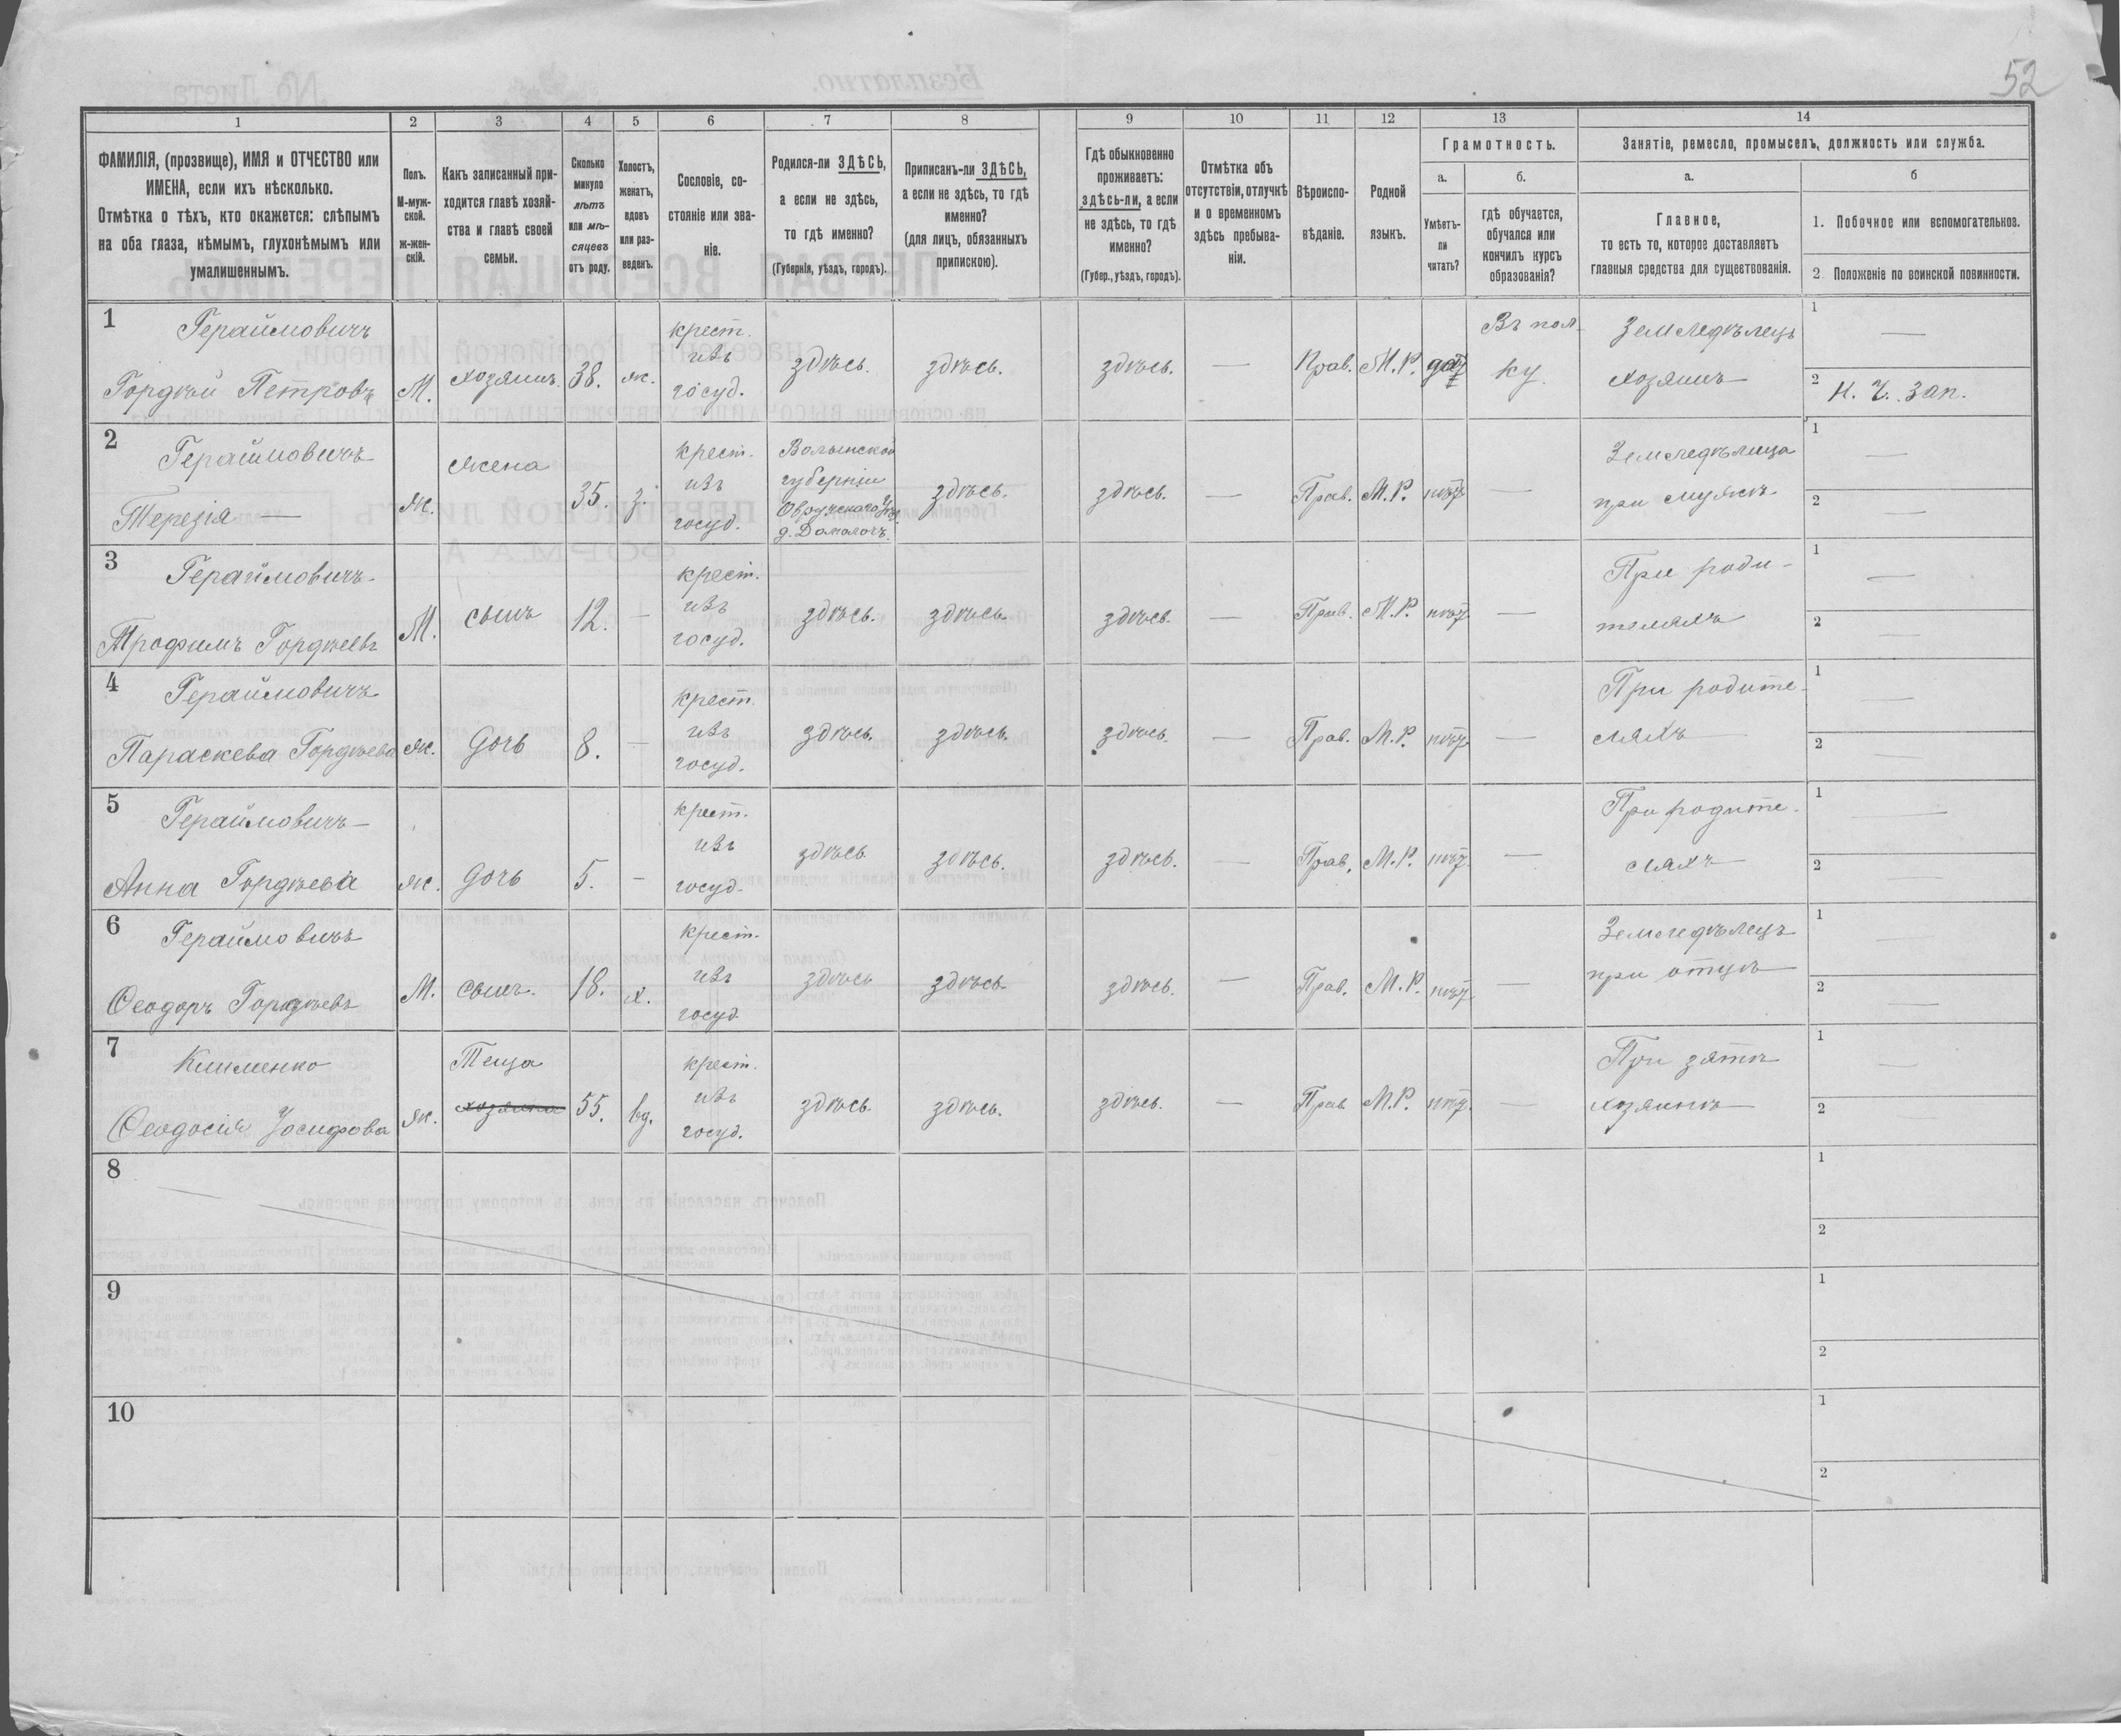 52
1 2 3 4 5 6 7 8 9 10 11 12 13 14
ФАМИЛІЯ, (прозвище), ИМЯ и ОТЧЕСТВО или
ИМЕНА, если ихъ нѣсколько.
Отмѣтка о тѣхъ, кто окажется: слѣпымъ
на оба глаза, нѣмымъ, глухонѣмымъ или
умалишеннымъ.
Полъ.
М-муж-
ской.
ж-жен-
скій.
Какъ записанный при-
ходится главѣ хозяй-
ства и главѣ своей
семьи.
Сколько
минуло
лѣтъ
или мѣ-
сяцевъ
отъ роду.
Холостъ,
женатъ,
вдовъ
или раз-
веденъ.
Сословіе, со-
стояніе или зва-
ніе.
Родился-ли ЗДѢСЬ,
а если не здѣсь,
то гдѣ именно?
(Губернія, уѣздъ, городъ).
Приписанъ-ли ЗДѢСЬ,
а если не здѣсь, то гдѣ
именно?
(для лицъ, обязанныхъ
припискою).
Гдѣ обыкновенно
проживаетъ:
здѣсь-ли, а если
не здѣсь, то гдѣ
именно?
(Губер., уѣздъ, городъ).
Отмѣтка объ
отсутствіи, отлучкѣ
и о временномъ
здѣсь пребыва-
ніи.
Вѣроиспо-
вѣданіе.
Родной
языкъ.
Грамотность.
а.
Умѣетъ-
ли
читать?
б.
гдѣ обучается,
обучался или
кончилъ курсъ
образованія?
Занятіе, ремесло, промыселъ, должность или служба.
а.
Главное,
то есть то, которое доставляетъ
главныя средства для существованія.
б
1. Побочное или вспомогательное.
2 Положеніе по воинской повинности.
1
Гераймовичъ
Гордѣй Петровъ
М.
хозяинъ.
38.
ж.
крест.
изъ
госуд.
здѣсь.
здѣсь.
здѣсь.
—
Прав.
М.Р.
да
Въ пол-
ку.
Земледѣлецъ
хозяинъ
1 —
2 Н. Ч. зап.
2
Гераймовичъ
Терезія —
ж.
жена
35.
з.
крест.
изъ
госуд.
Волынской
губерніи
Овручскаго у.
здѣсь.
здѣсь.
—
Прав.
М.Р.
нѣтъ
—
Земледѣлица
при мужѣ
1 —
2 —
3
Гераймовичъ
Трофимъ Гордѣевъ
М.
сынъ
12.
—
крест.
изъ
госуд.
здѣсь.
здѣсь.
здѣсь.
—
Прав.
М.Р.
нѣтъ
—
При роди-
теляхъ
1 —
2 —
4
Гераймовичъ
Параскева Гордѣева
ж.
дочь
8.
—
крест.
изъ
госуд.
здѣсь.
здѣсь.
здѣсь.
—
Прав.
М.Р.
нѣтъ
—
При родите-
ляхъ
1 —
2 —
5
Гераймовичъ
Анна Гордѣева
ж.
дочь
5.
—
крест.
изъ
госуд.
здѣсь
здѣсь.
здѣсь.
—
Прав.
М.Р.
нѣтъ
—
При родите-
ляхъ
1 —
2 —
6
Гераймовичъ
Ѳеодоръ Гордѣевъ
М.
сынъ.
18.
х.
крест.
изъ
госуд
здѣсь
здѣсь.
здѣсь.
—
Прав.
М.Р.
нѣтъ
—
Земледѣлецъ
при отцѣ
1 —
2 —
7
Клименко
Ѳеодосія Іосифова
ж.
Теща
хозяина
55.
вд.
крест.
изъ
госуд.
здѣсь.
здѣсь.
здѣсь.
—
Прав.
М.Р.
нѣтъ
—
При зятѣ
хозяинѣ
1 —
2
8
1
2
9
1
2
10
1
2